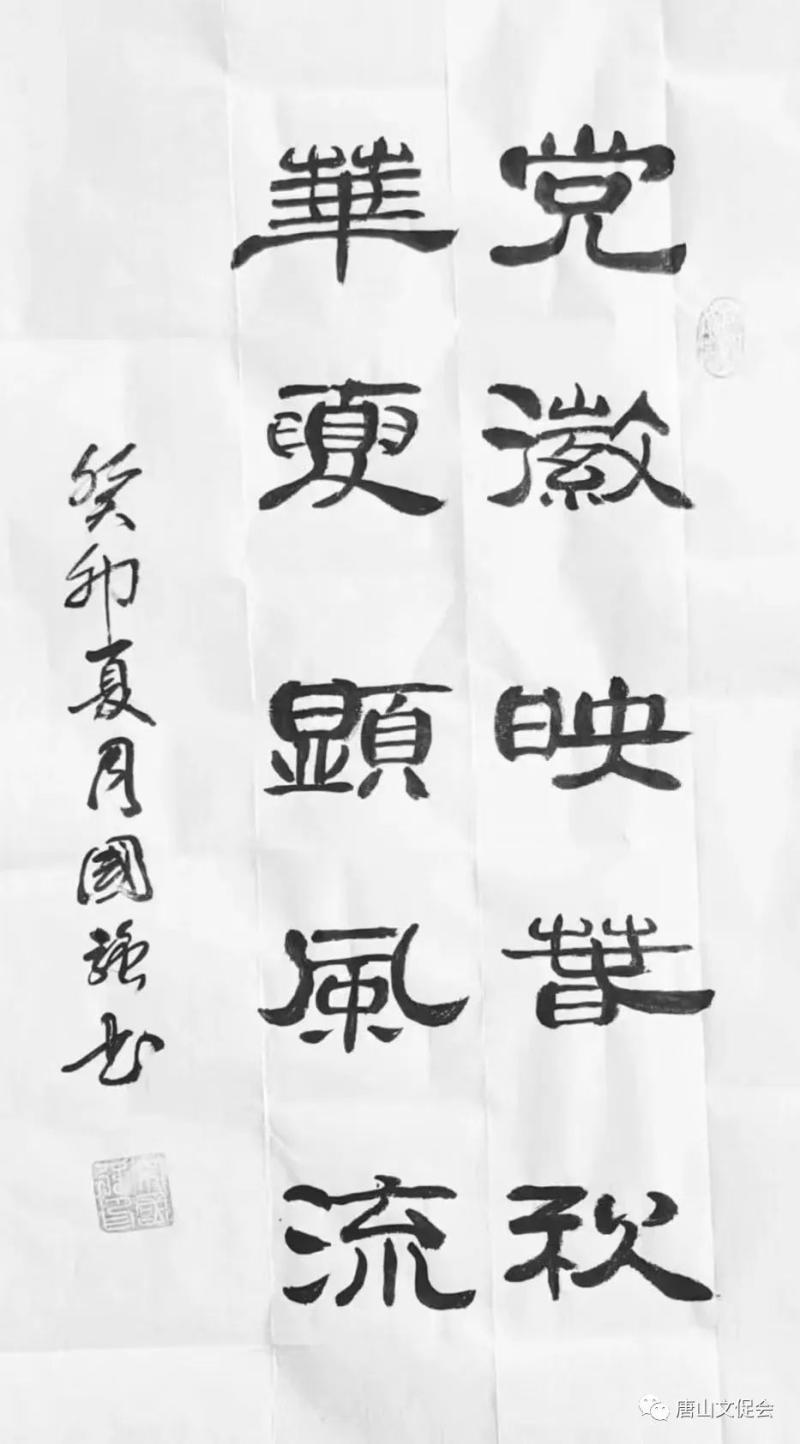 党徽映春秋
華夏顯風流
癸卯夏月國強书
唐山文促会